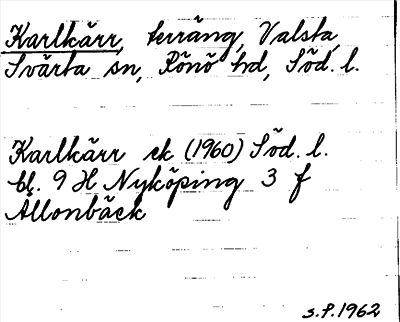 Karlkärr, terräng, Valsta,
Svärta sn, Rönö hd, Söd. l.
Karlkärr ek (1960) Söd. l.
bl. 9 H Nyköping 3 f
Ållonbäck
s.P. 1962